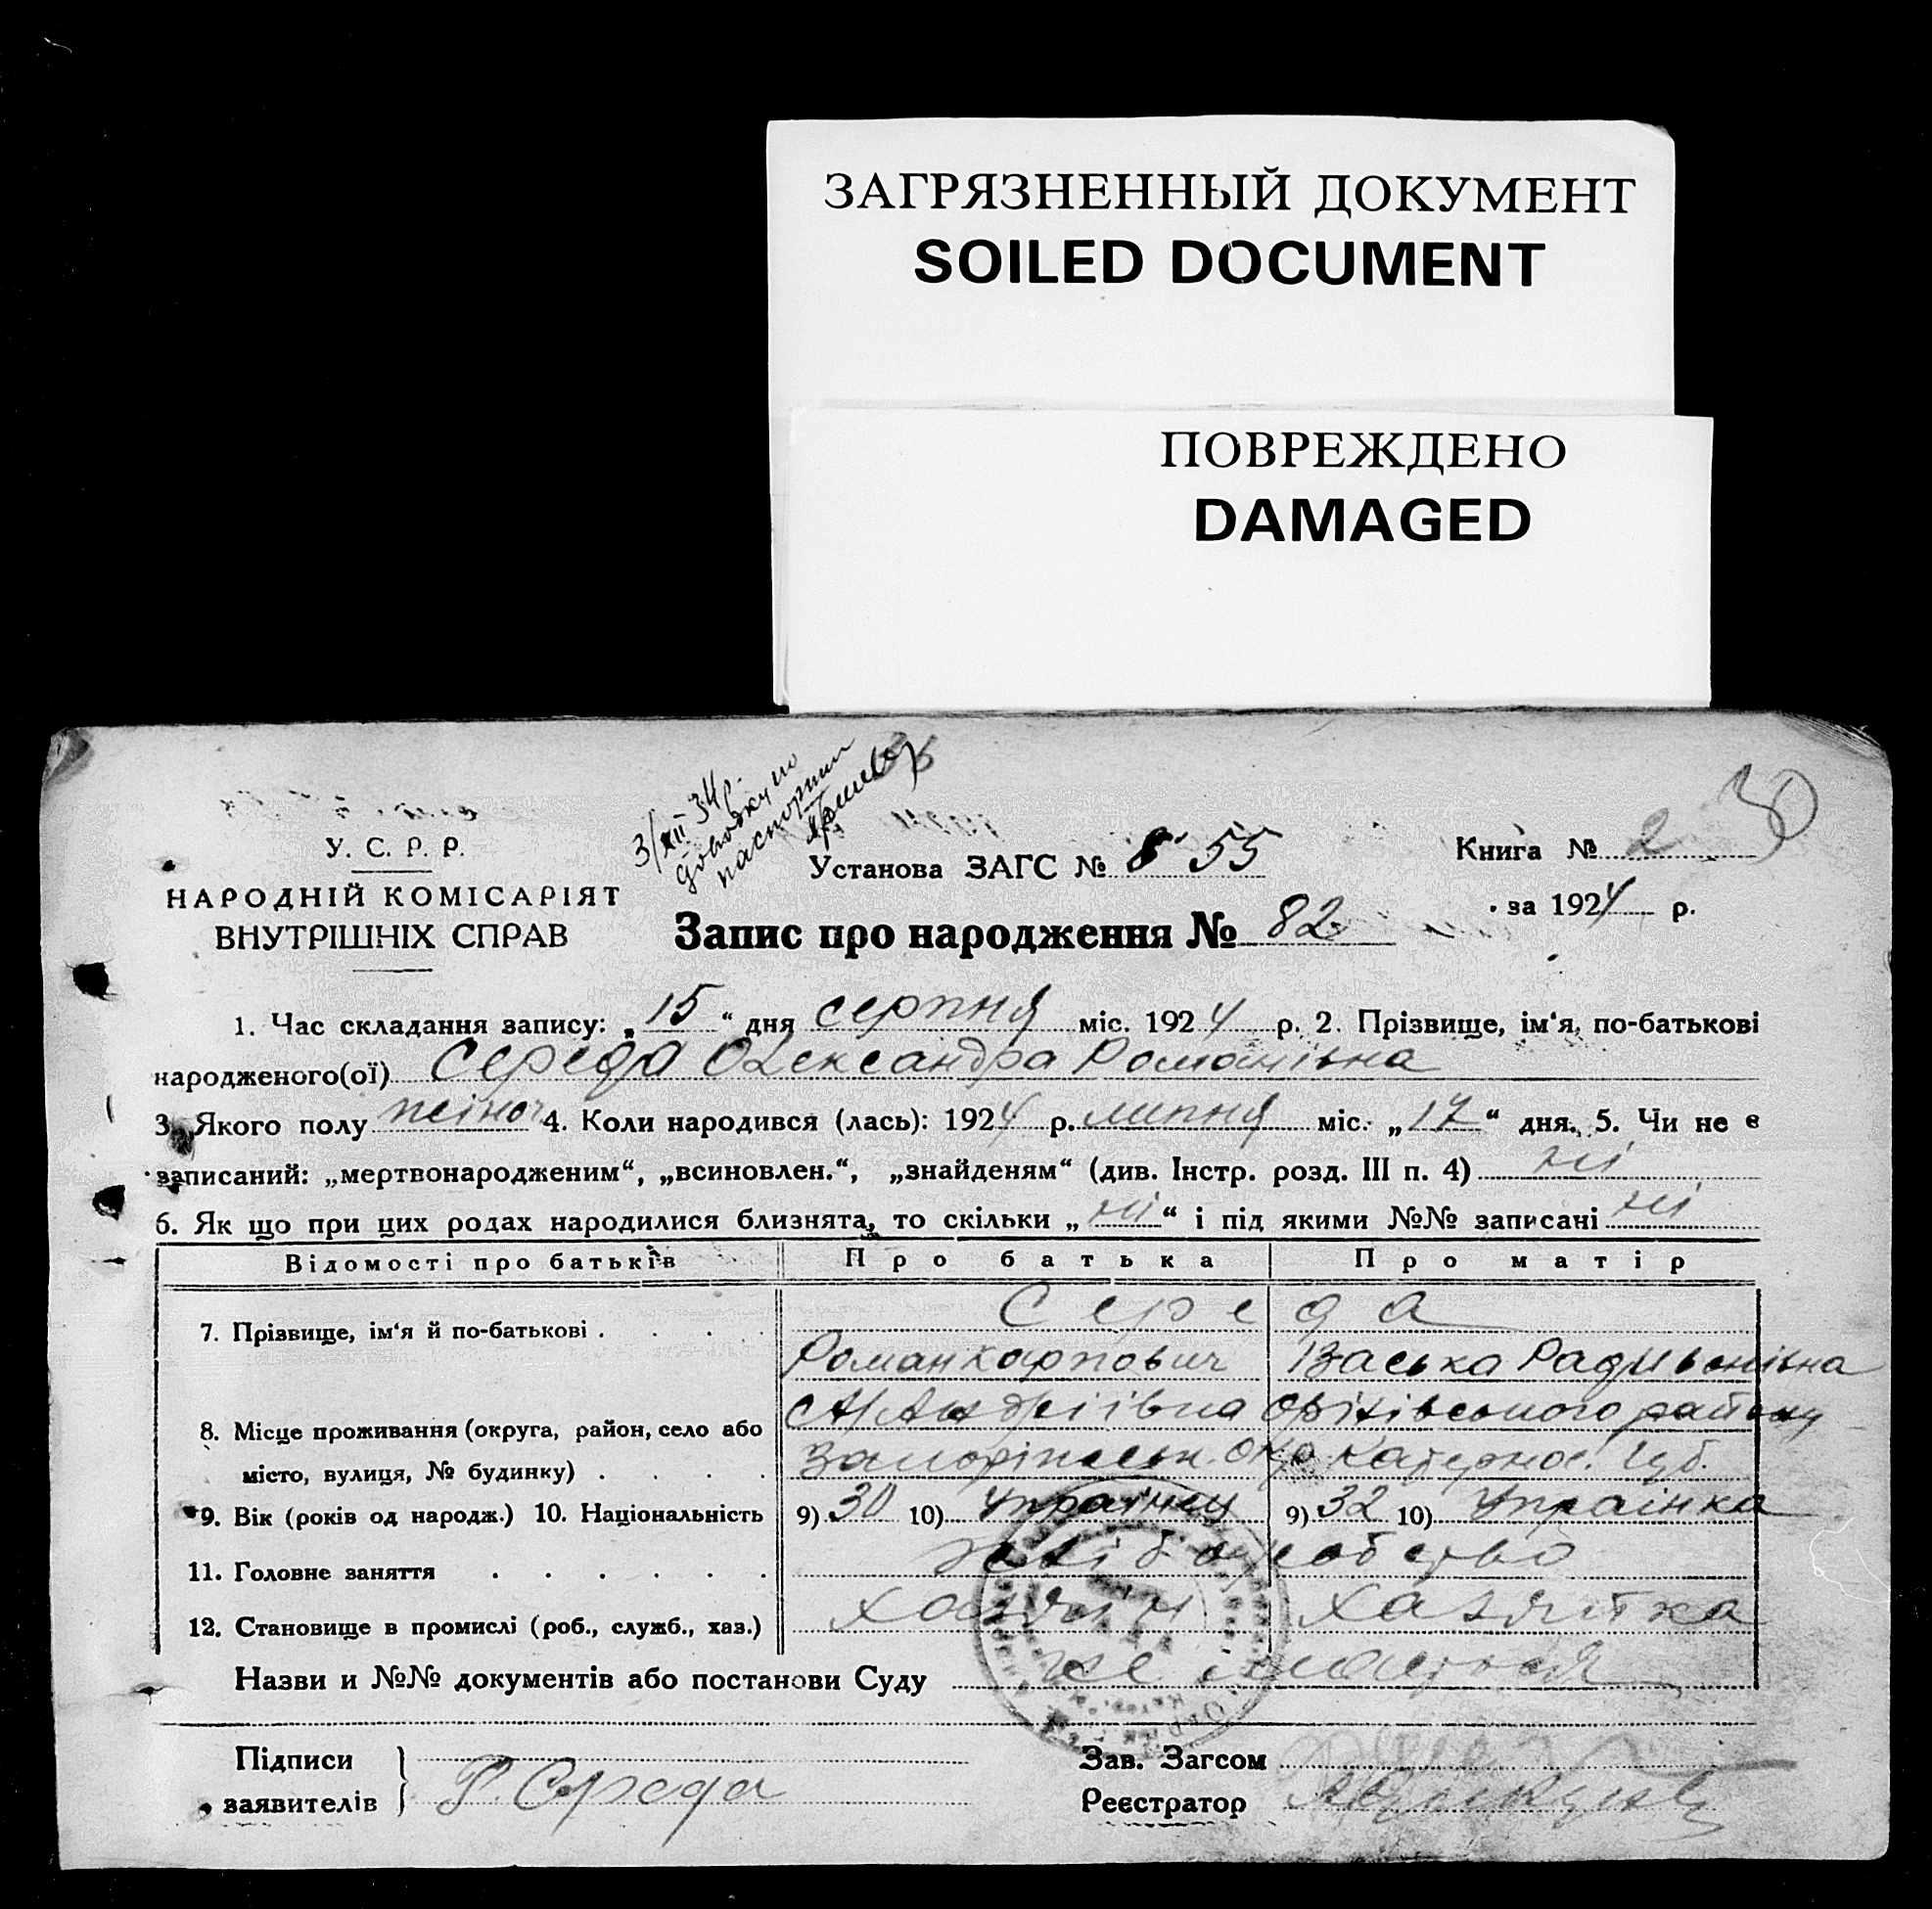 ЗАГРЯЗНЕННЫЙ ДОКУМЕНТ
SOILED DOCUMENT
ПОВРЕЖДЕНО
DAMAGED
30
3/XII 34р.
довідку по
паспортии
У. С. Р. Р.
НАРОДНІЙ КОМІСАРІЯТ
ВНУТРІШНІХ СПРАВ
Установа ЗАГС № 8 55
Книга № 2
за 1924 р.
Запис про народження № 82
1. Час складання запису: „15“ дня серпня міс. 1924 р. 2. Прізвище, ім‘я, по-батькові
народженого(ої) Середа Олександра Романівна
3. Якого полу жіноч 4. Коли народився (лась): 1924 р. липня міс. „17“ дня. 5. Чи не є
записаний: „мертвонародженим“, „всиновлен.“, „знайденям“ (див. Інстр. розд. III п. 4) ні
6. Як що при цих родах народилися близнята, то скільки „ні“ і під якими №№ записані ні
Відомості про батьків Про батька Про матір
7. Прізвище, ім‘я й по-батькові . . . . Середа
Роман Карпович Васька Радивонівна
8. Місце проживання (округа, район, село або с/Андріївна Оріхівського району
місто, вулиця, № будинку) . . . . Запоріжськ. окр Катернос. Губ.
9. Вік (років од народж.) 10. Національність 9) 30 10) Украінец 9) 32 10) Украінка
11. Головне заняття . . . . . . хліборобство
12. Становище в промислі (роб., служб., хаз.) хазяин хазяйка
Назви и №№ документів або постанови Суду не імається
Підписи
заявителів Р. Середа
Зав. Загсом
Реєстратор